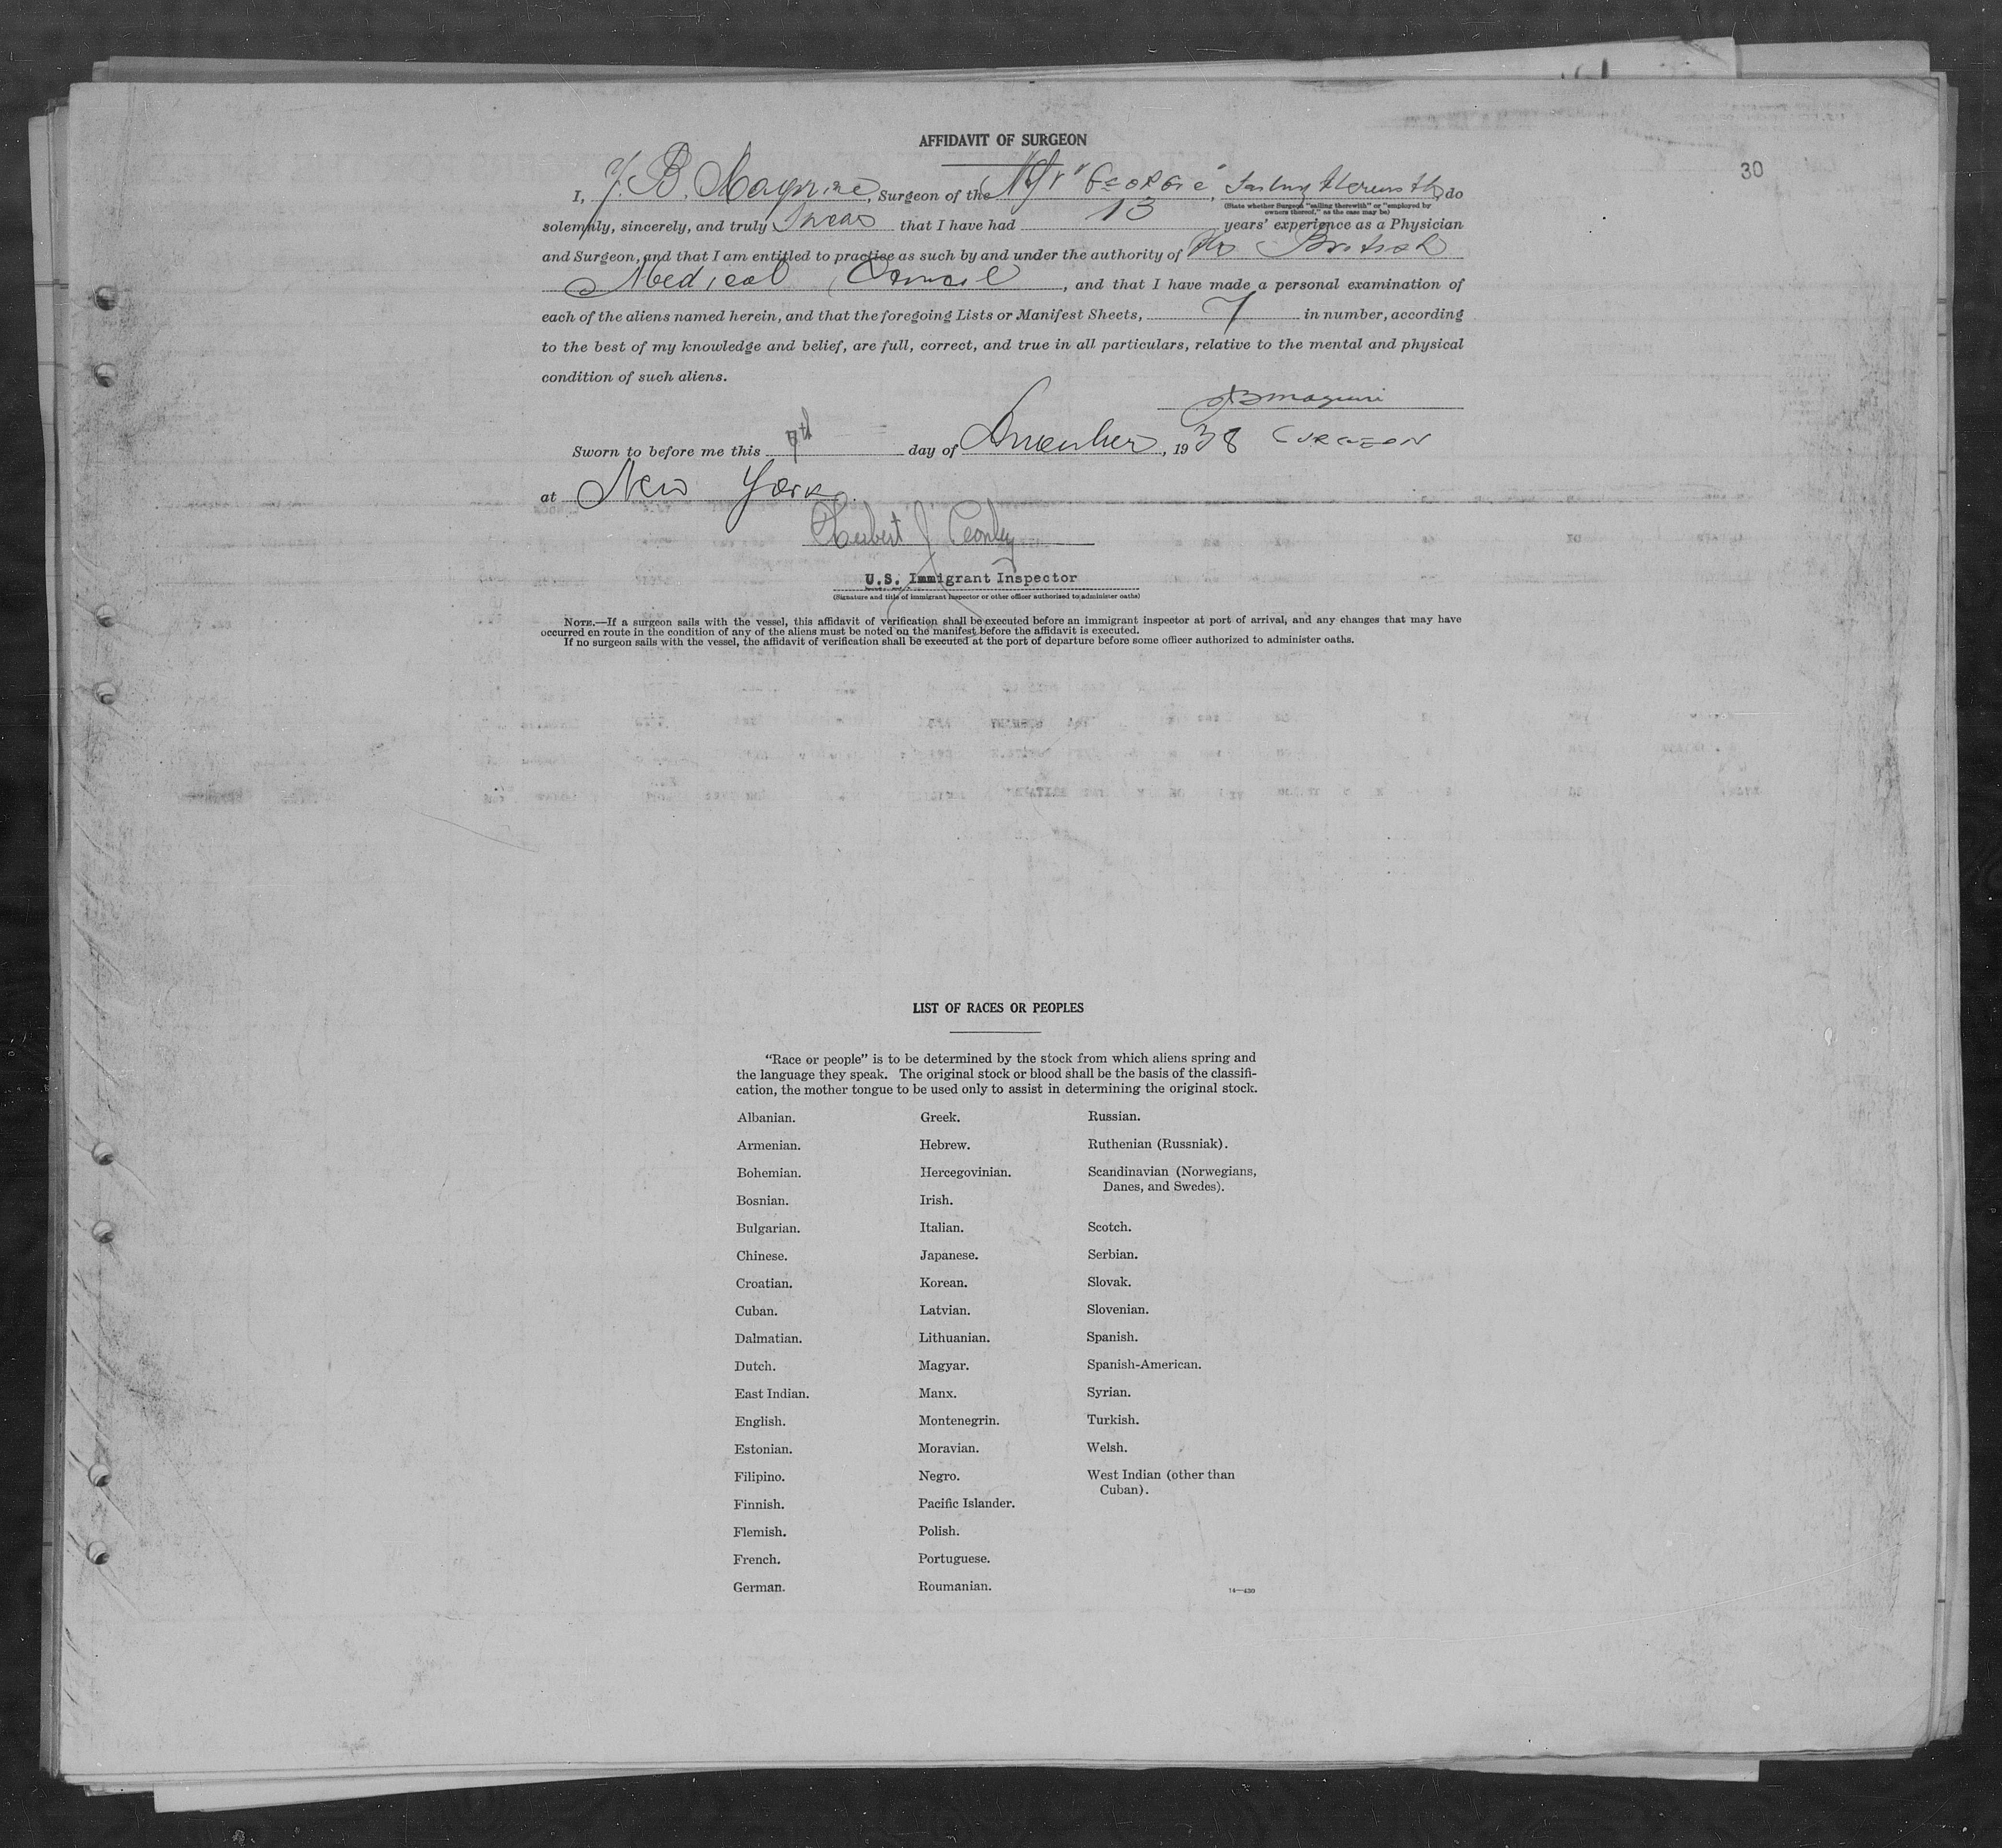 AFFIDAVIT OF SURGEON
30
I, J. B. Maguire, Surgeon of the M/V "GEORGIC", Sailing therewith, do
(State whether Surgeon "sailing therewith" or "employed by owners thereof," as the case may be)
solemnly, sincerely, and truly Swear that I have had 13 years' experience as a Physician
and Surgeon, and that I am entitled to practise as such by and under the authority of the British
Medical Council, and that I have made a personal examination of
each of the aliens named herein, and that the foregoing Lists or Manifest Sheets, 7 in number, according
to the best of my knowledge and belief, are full, correct, and true in all particulars, relative to the mental and physical
condition of such aliens.
JBMaguire
Sworn to before me this day of 1938 SURGEON
at New York.
Herbert J Conley
U.S. Immigrant Inspector
(Signature and title of immigrant inspector or other officer authorized to administer oaths)
NOTE.—If a surgeon sails with the vessel, this affidavit of verification shall be executed before an immigrant inspector at port of arrival, and any changes that may have
occurred en route in the condition of any of the aliens must be noted on the manifest before the affidavit is executed.
If no surgeon sails with the vessel, the affidavit of verification shall be executed at the port of departure before some officer authorized to administer oaths.
LIST OF RACES OR PEOPLES
"Race or people" is to be determined by the stock from which aliens spring and
the language they speak. The original stock or blood shall be the basis of the classifi-
cation, the mother tongue to be used only to assist in determining the original stock.
Albanian.
Armenian.
Bohemian.
Bosnian.
Bulgarian.
Chinese.
Croatian.
Cuban.
Dalmatian.
Dutch.
East Indian.
English.
Estonian.
Filipino.
Finnish.
Flemish.
French.
German.
Greek.
Hebrew.
Hercegovinian.
Irish.
Italian.
Japanese.
Korean.
Latvian.
Lithuanian.
Magyar.
Manx.
Montenegrin.
Moravian.
Negro.
Pacific Islander.
Polish.
Portuguese.
Roumanian.
Russian.
Ruthenian (Russniak).
Scandinavian (Norwegians,
Danes, and Swedes).
Scotch.
Serbian.
Slovak.
Slovenian.
Spanish.
Spanish-American.
Syrian.
Turkish.
Welsh.
West Indian (other than
Cuban).
14—430